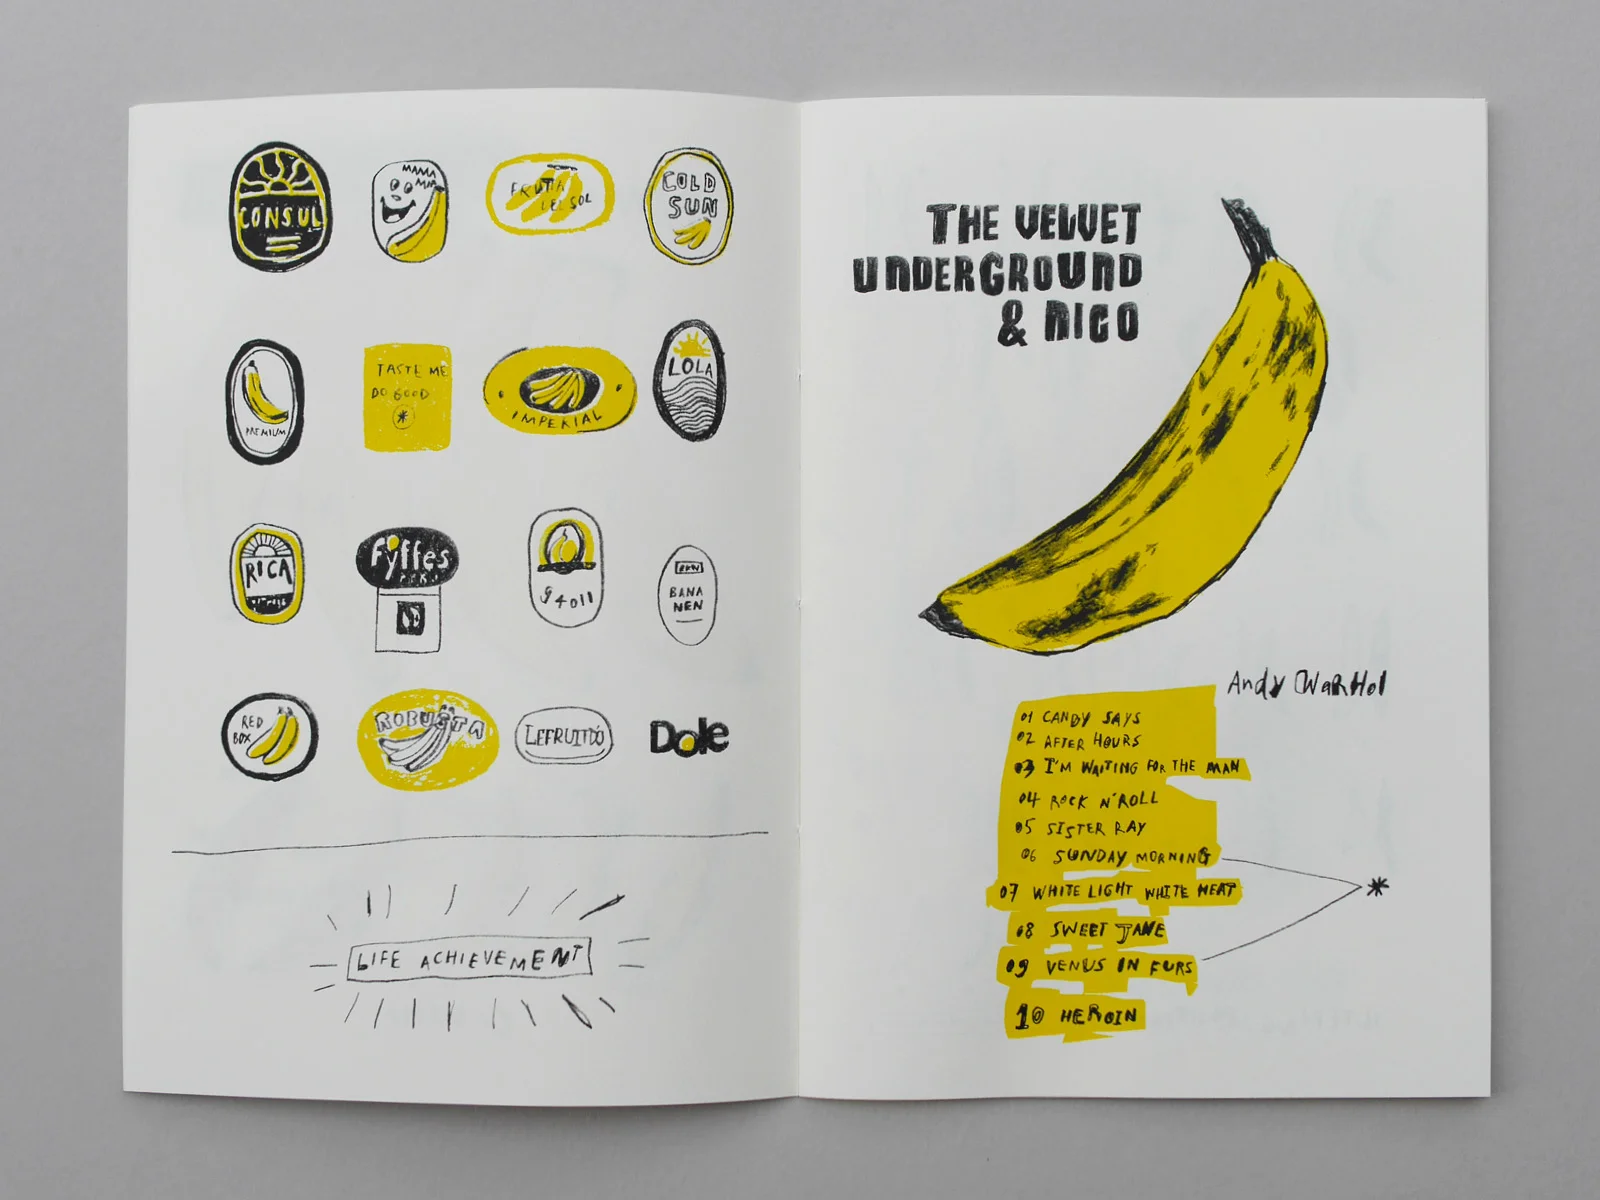 CONSUL
MAMA
MIA
FRUTTA
DEL SOL
COLD
SUN
PREMIUM
TASTE ME
DO GOOD
IMPERIAL
LOLA
RICA
Fyffes
94011
BANA
NEN
RED
BOX
ROBUSTA
LEFRUITDÓ
Dole
LIFE ACHIEVEMENT
THE VELVET
UNDERGROUND
& NICO
Andy WaRHol
01 CANDY SAYS
02 AFTER HOURS
03 I'M WAITING FOR THE MAN
04 ROCK N'ROLL
05 SISTER RAY
06 SUNDAY MORNING
07 WHITE LIGHT WHITE HEAT
*
08 SWEET JANE
09 VENUS IN FURS
10 HEROIN